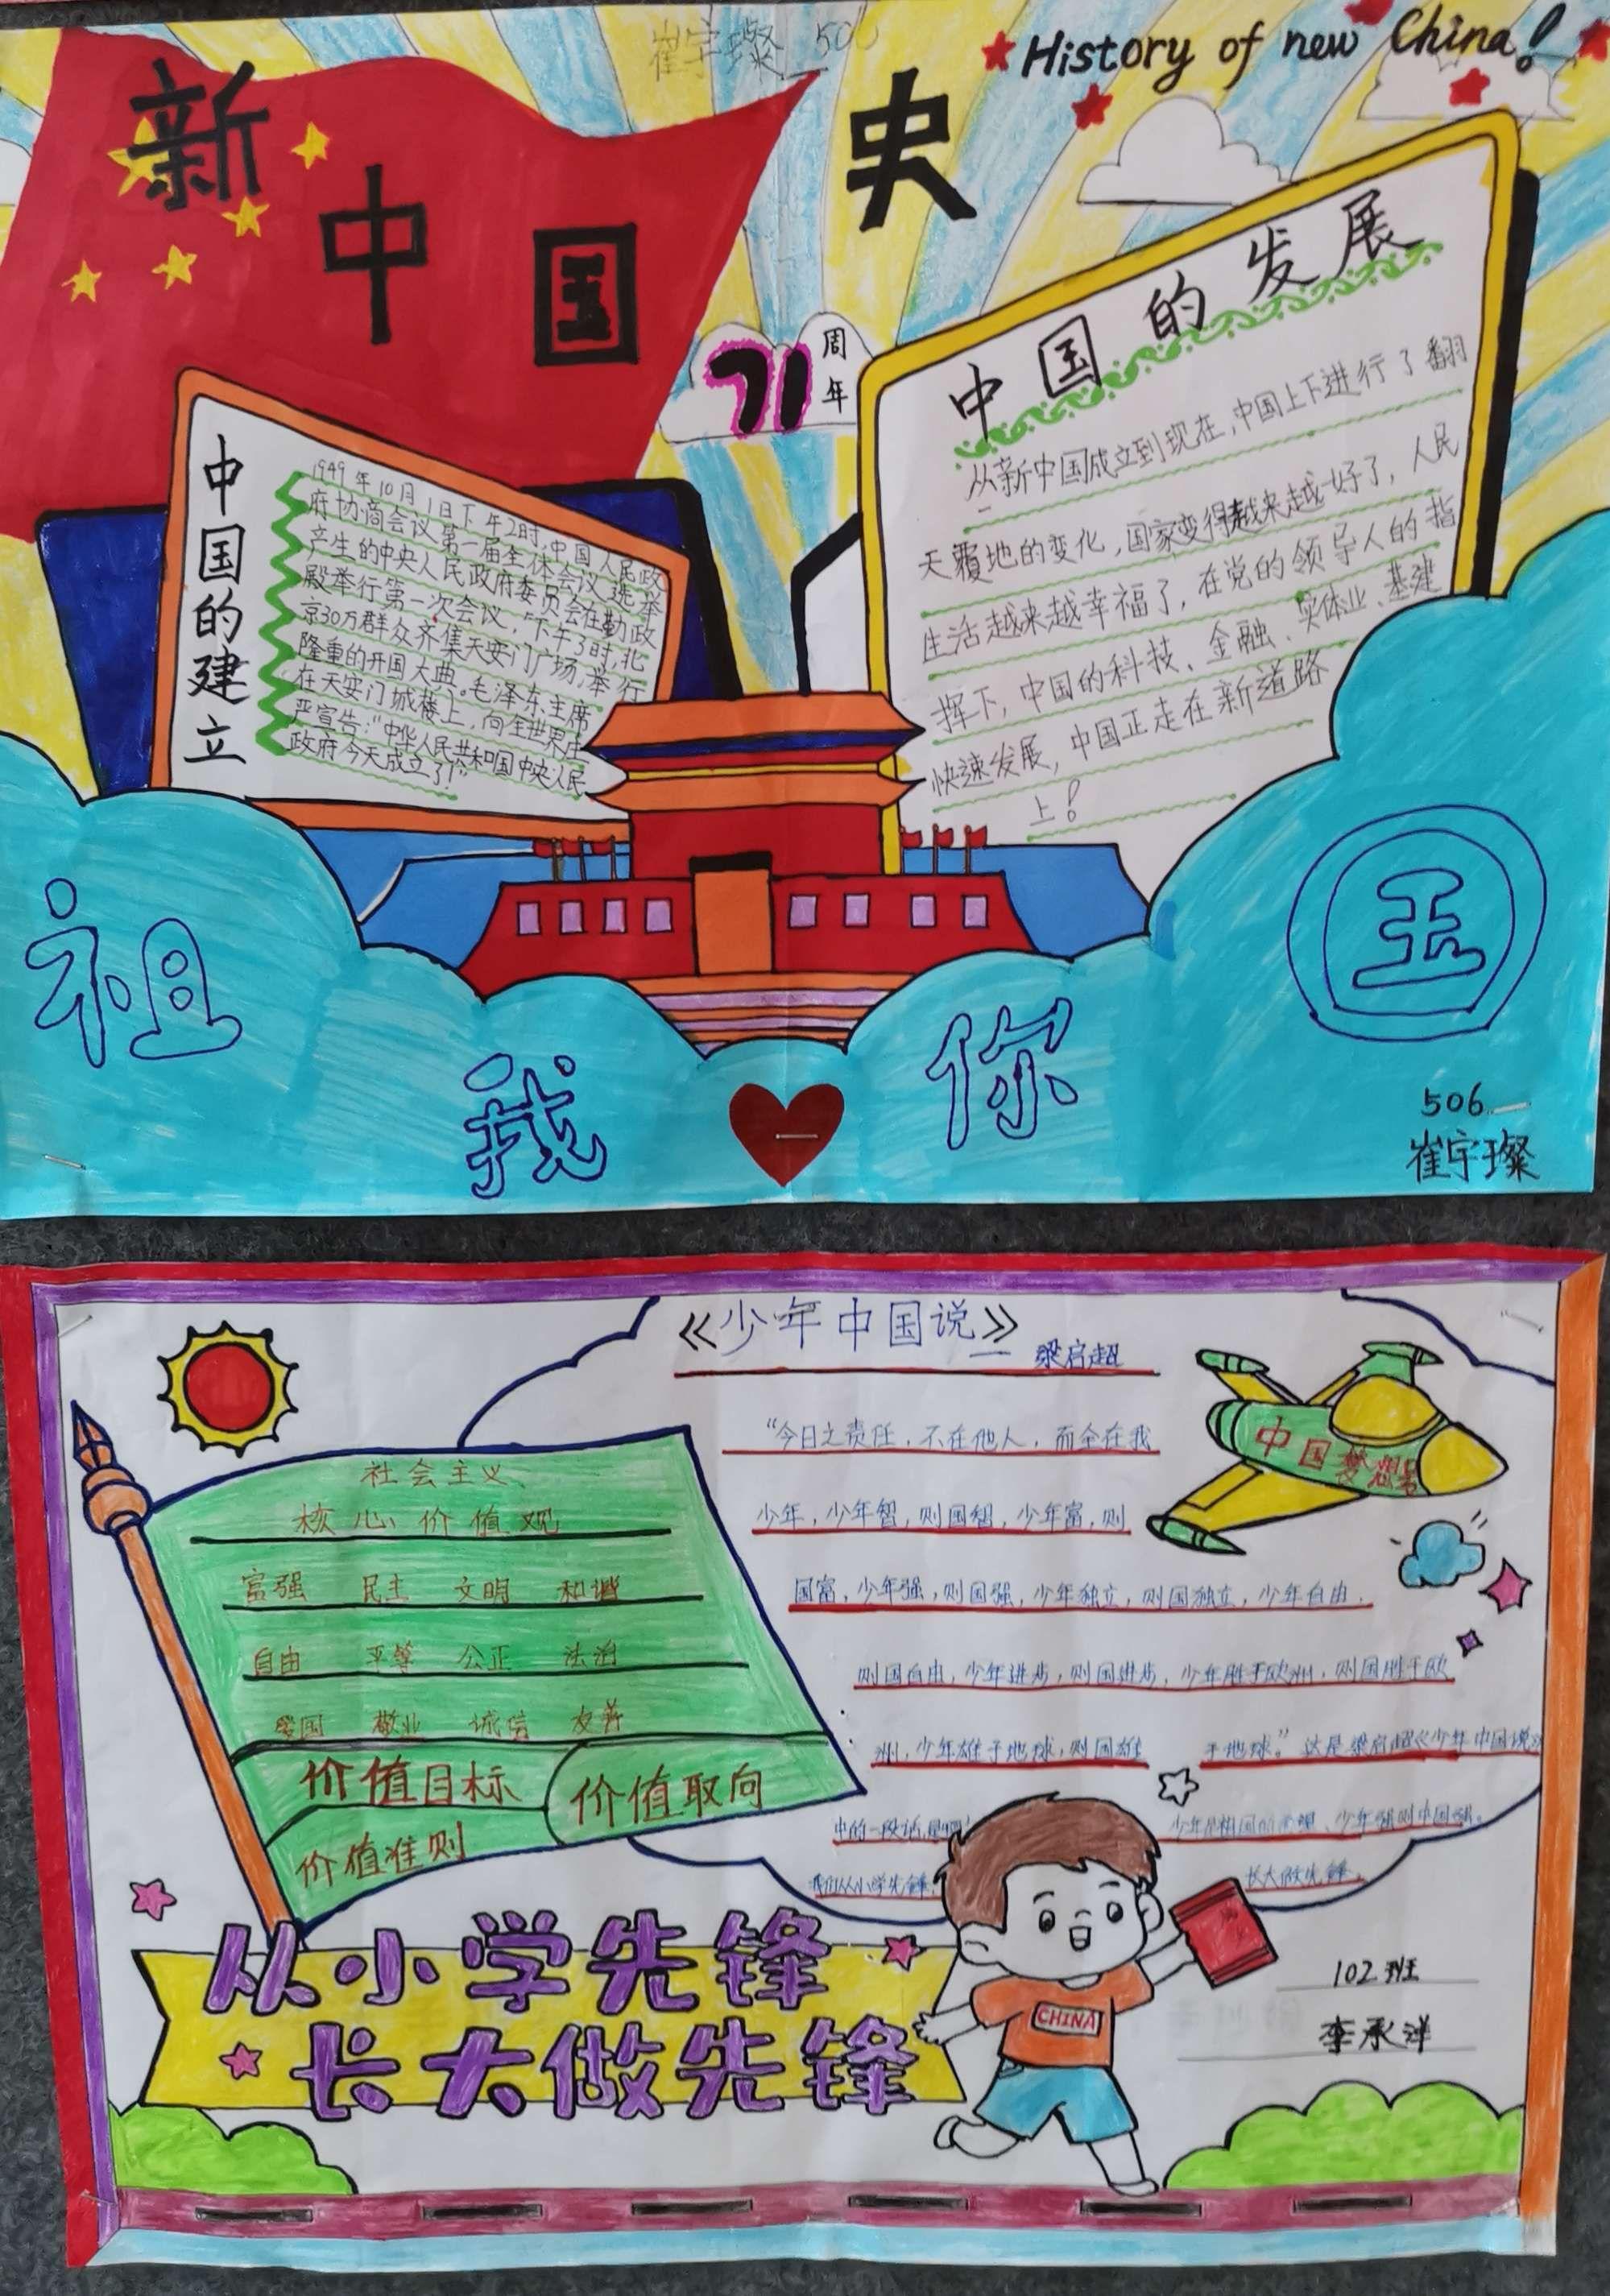 崔宇璨 506
History of new China!
新中国史
71周年
中国的建立
1949年10月1日下午2时,中国人民政
府协商会议第一届全体会议选举
产生的中央人民政府委员会在勤政
殿举行第一次会议,下午3时,北
京30万群众齐集天安门广场,举行
隆重的开国大典。毛泽东主席
在天安门城楼上,向全世界庄
严宣告:“中华人民共和国中央人民
政府今天成立了!”
中国的发展
从新中国成立到现在,中国上下进行了翻
天覆地的变化,国家变得越来越好了,人民
生活越来越幸福了,在党的领导人的指
挥下,中国的科技、金融、实体业、基建
快速发展,中国正走在新道路
上!
祖国
我 你
506
崔宇璨
《少年中国说》
梁启超
“今日之责任,不在他人,而全在我
少年,少年智,则国智,少年富,则
国富,少年强,则国强,少年独立,则国独立,少年自由,
则国自由,少年进步,则国进步,少年胜于欧洲,则国胜于欧
洲,少年雄于地球,则国雄于地球。”这是梁启超《少年中国说》
中的一段话, 少年是祖国的希望、少年强则中国强。
我们从小学先锋, 长大做先锋。
中国梦想号
社会主义
核心价值观
富强 民主 文明 和谐
自由 平等 公正 法治
爱国 敬业 诚信 友善
价值目标
价值取向
价值准则
从小学先锋
长大做先锋
CHINA
102班
李承洋